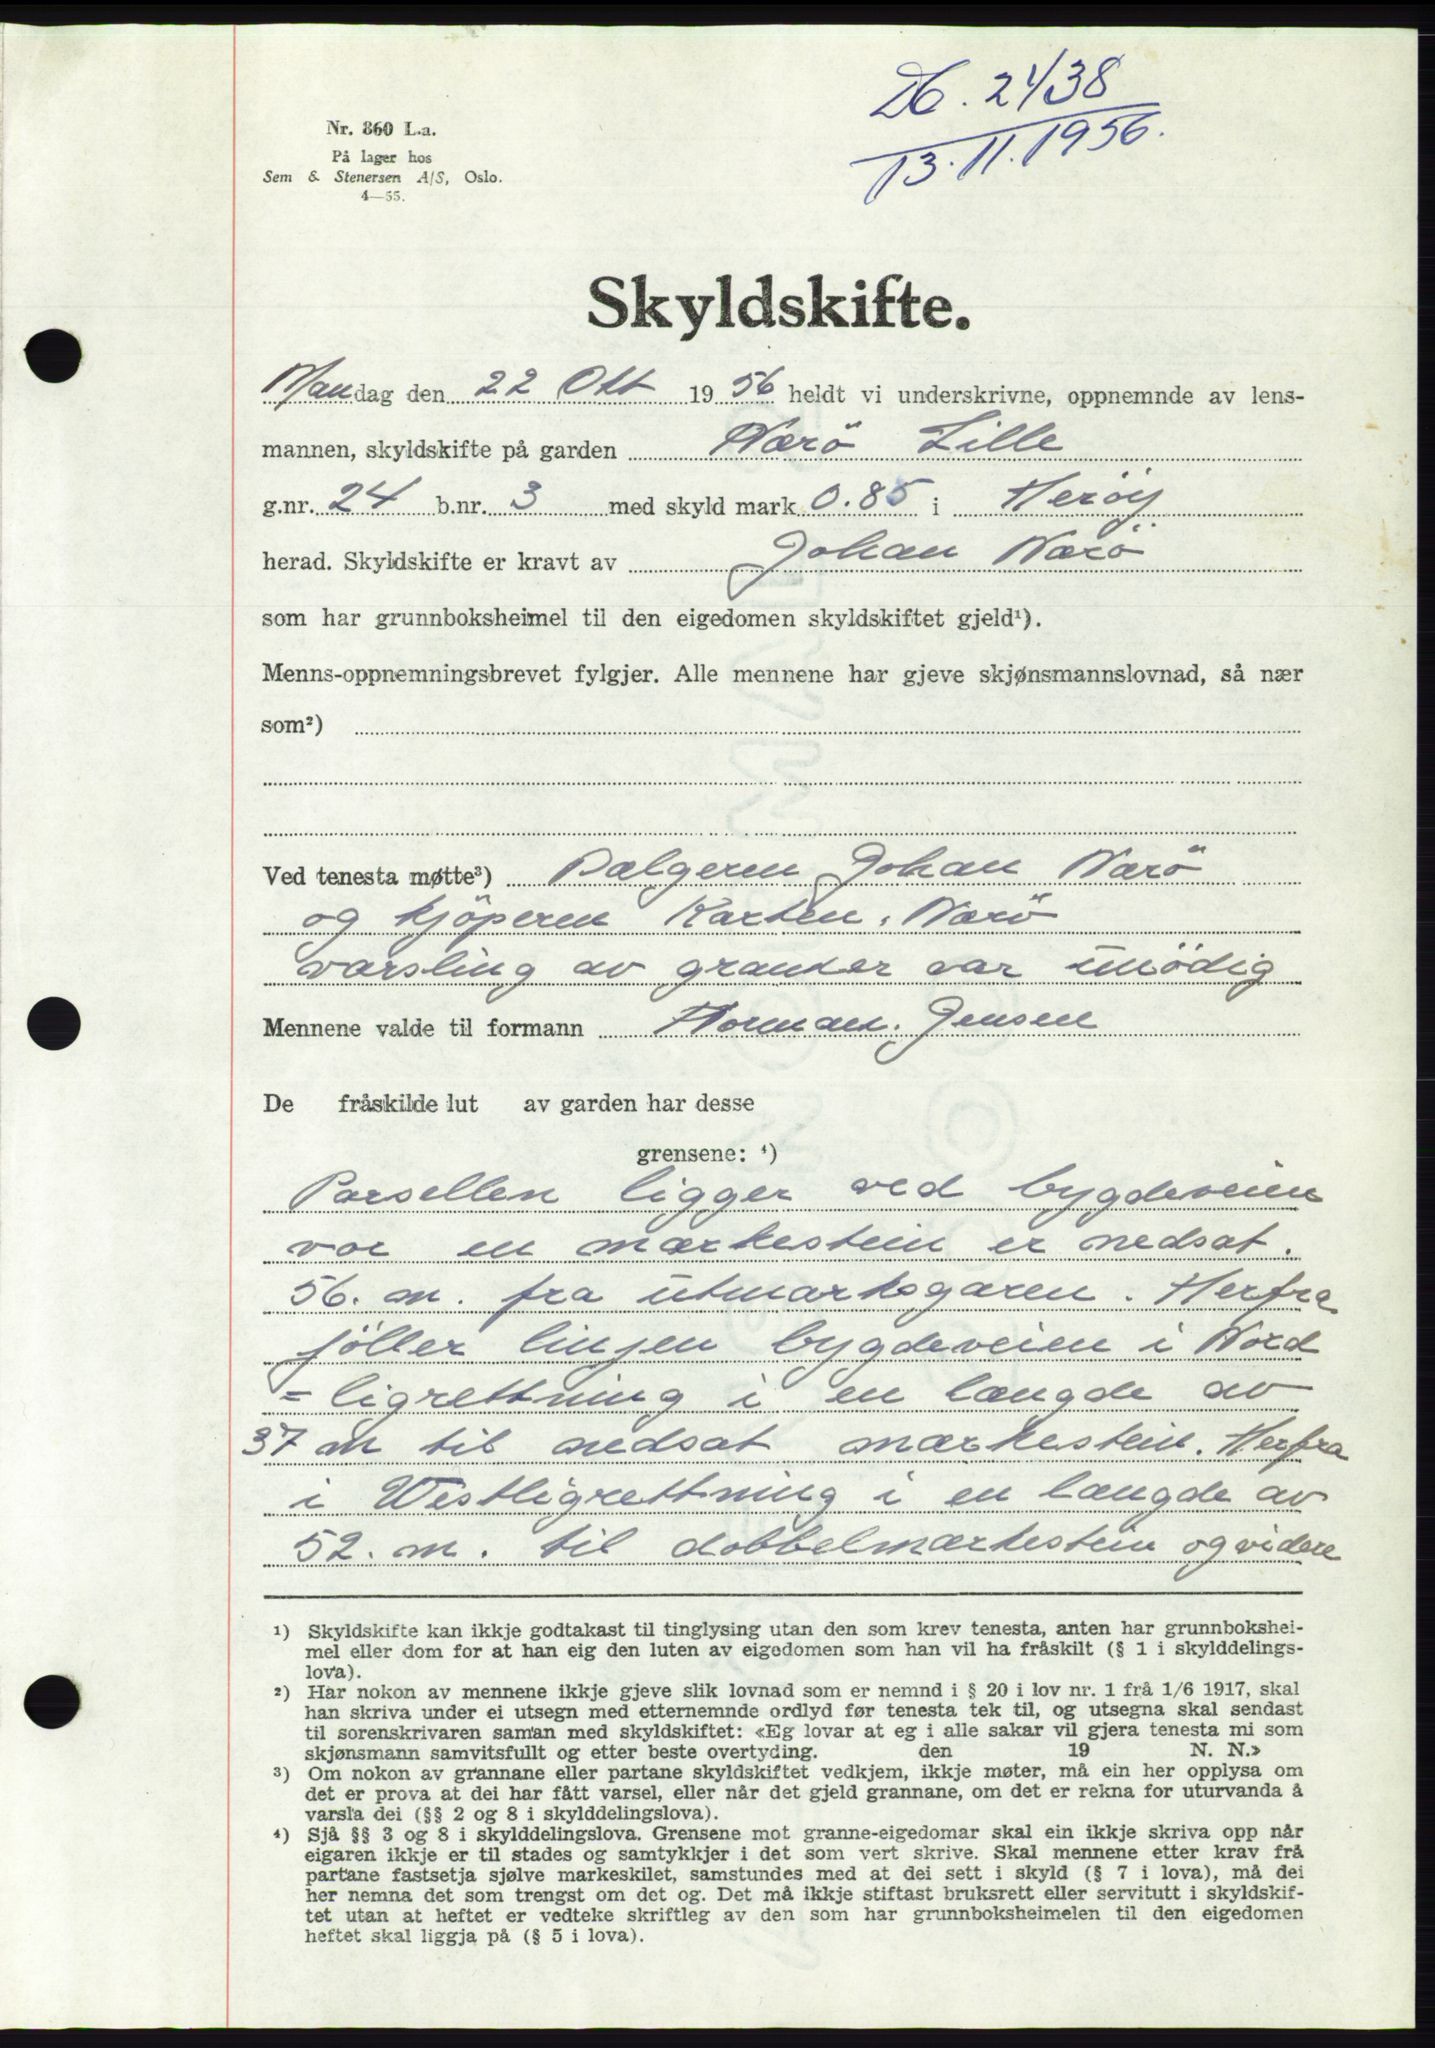 Db. 2438
13.11.1956.
Nr. 860 L.a.
På lager hos
Sem & Stenersen A/S, Oslo.
4—55.
Skyldskifte.
Mandag den 22 Okt 1956 heldt vi underskrivne, oppnemnde av lens-
mannen, skyldskifte på garden Nærö Lille
g.nr. 24 b.nr. 3 med skyld mark 0.85 i Herøy
herad. Skyldskifte er kravt av Johan Nærö
som har grunnboksheimel til den eigedomen skyldskiftet gjeld¹).
Menns-oppnemningsbrevet fylgjer. Alle mennene har gjeve skjønsmannslovnad, så nær
som²)
Ved tenesta møtte³) Sælgeren Johan Nærö
og kjöperen Karten. Nærö
varsling av grander var unödig
Mennene valde til formann Norman. Jensen
De fråskilde lut av garden har desse
grensene: ⁴)
Parsellen ligger ved bygdeveien
vor en mærkestein er nedsat.
56. m. fra utmarksgaren. Herfra
föller linjen bygdeveien i Nord
=ligrettning i en længde av
37 m til nedsat mærkestein. Herfra
i Westligrettning i en længde av
52. m. til dobbelmærkestein og videre
1) Skyldskifte kan ikkje godtakast til tinglysing utan den som krev tenesta, anten har grunnbokshei-
mel eller dom for at han eig den luten av eigedomen som han vil ha fråskilt (§ 1 i skylddelings-
lova).
2) Har nokon av mennene ikkje gjeve slik lovnad som er nemnd i § 20 i lov nr. 1 frå 1/6 1917, skal
han skriva under ei utsegn med etternemnde ordlyd før tenesta tek til, og utsegna skal sendast
til sorenskrivaren saman med skyldskiftet: «Eg lovar at eg i alle sakar vil gjera tenesta mi som
skjønsmann samvitsfullt og etter beste overtyding. den 19 N. N.»
3) Om nokon av grannane eller partane skyldskiftet vedkjem, ikkje møter, må ein her opplysa om
det er prova at dei har fått varsel, eller når det gjeld grannane, om det er rekna for uturvanda å
varsla dei (§§ 2 og 8 i skylddelingslova).
4) Sjå §§ 3 og 8 i skylddelingslova. Grensene mot granne-eigedomar skal ein ikkje skriva opp når
eigaren ikkje er til stades og samtykkjer i det som vert skrive. Skal mennene etter krav frå
partane fastsetja sjølve markeskilet, samstundes med at dei sett i skyld (§ 7 i lova), må dei
her nemna det som trengst om det og. Det må ikkje stiftast bruksrett eller servitutt i skyldskif-
tet utan at heftet er vedteke skriftleg av den som har grunnboksheimelen til den eigedomen
heftet skal liggja på (§ 5 i lova).